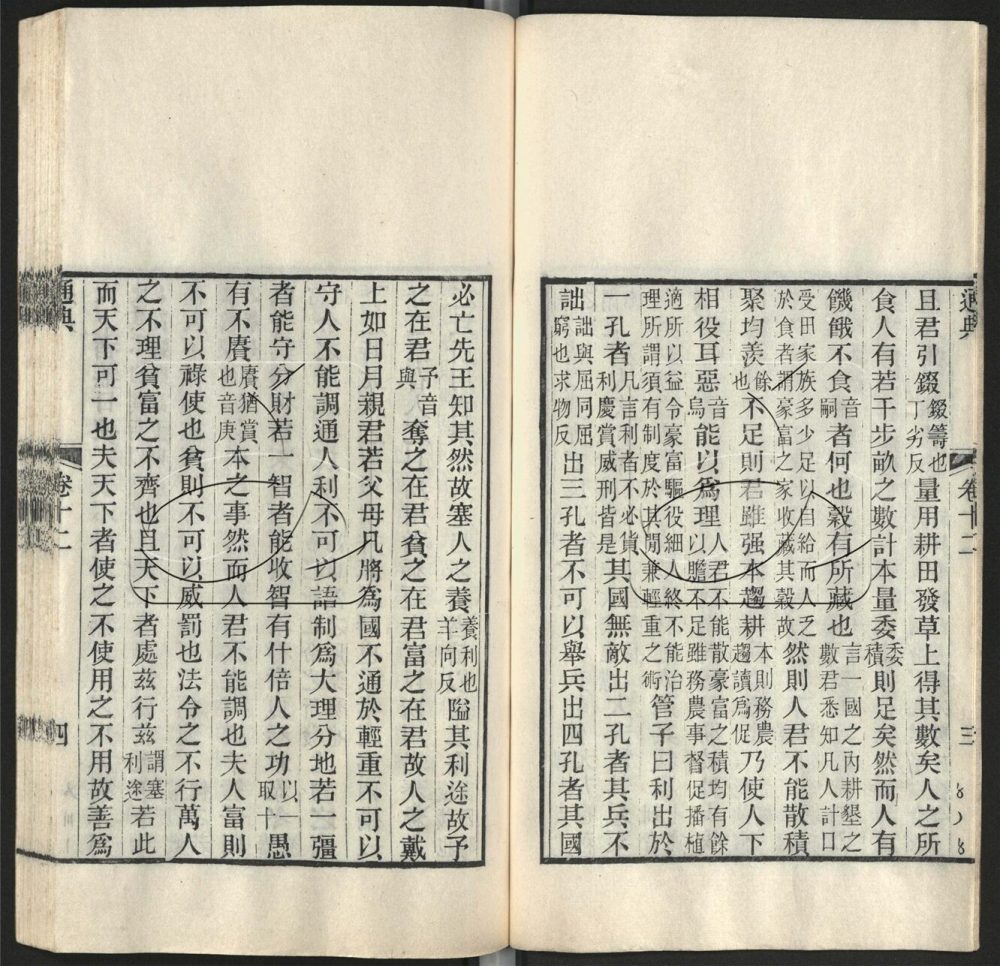 通典 卷十二 三
且君引錣錣籌也丁劣反量用耕田發草上得其數矣人之所
食人有若干步畝之數計本量委委積則足矣然而人有
饑餓不食音嗣者何也穀有所藏也言一國之內耕墾之數君悉知凡人計口
受田家族多少足以自給而人乏於食者謂豪富之家收藏其穀故然則人君不能散積
聚均羨餘也不足則君雖强本趨耕本則務農趨讀爲促乃使人下
相役耳惡音烏能以爲理人君不能散豪富之積均有餘以贍不足雖務農事督促播植
適所以益令豪富驅役細人終不能治理所謂須有制度於其閒兼輕重之術管子曰利出於
一孔者凡言利者不必貨利慶賞威刑皆是其國無敵出二孔者其兵不
詘詘與屈同屈窮也求物反出三孔者不可以舉兵出四孔者其國
必亡先王知其然故塞人之養養利也羊向反隘其利途故予
之在君予音與奪之在君貧之在君富之在君故人之戴
上如日月親君若父母凡將爲國不通於輕重不可以
守人不能調通人利不可以語制爲大理分地若一彊
者能守分財若一智者能收智有什倍人之功以一取十愚
有不賡賡猶賞也音庚本之事然而人君不能調也夫人富則
不可以祿使也貧則不可以威罰也法令之不行萬人
之不理貧富之不齊也且天下者處茲行茲謂塞利途若此
而天下可一也夫天下者使之不使用之不用故善爲
通典 卷十二 四